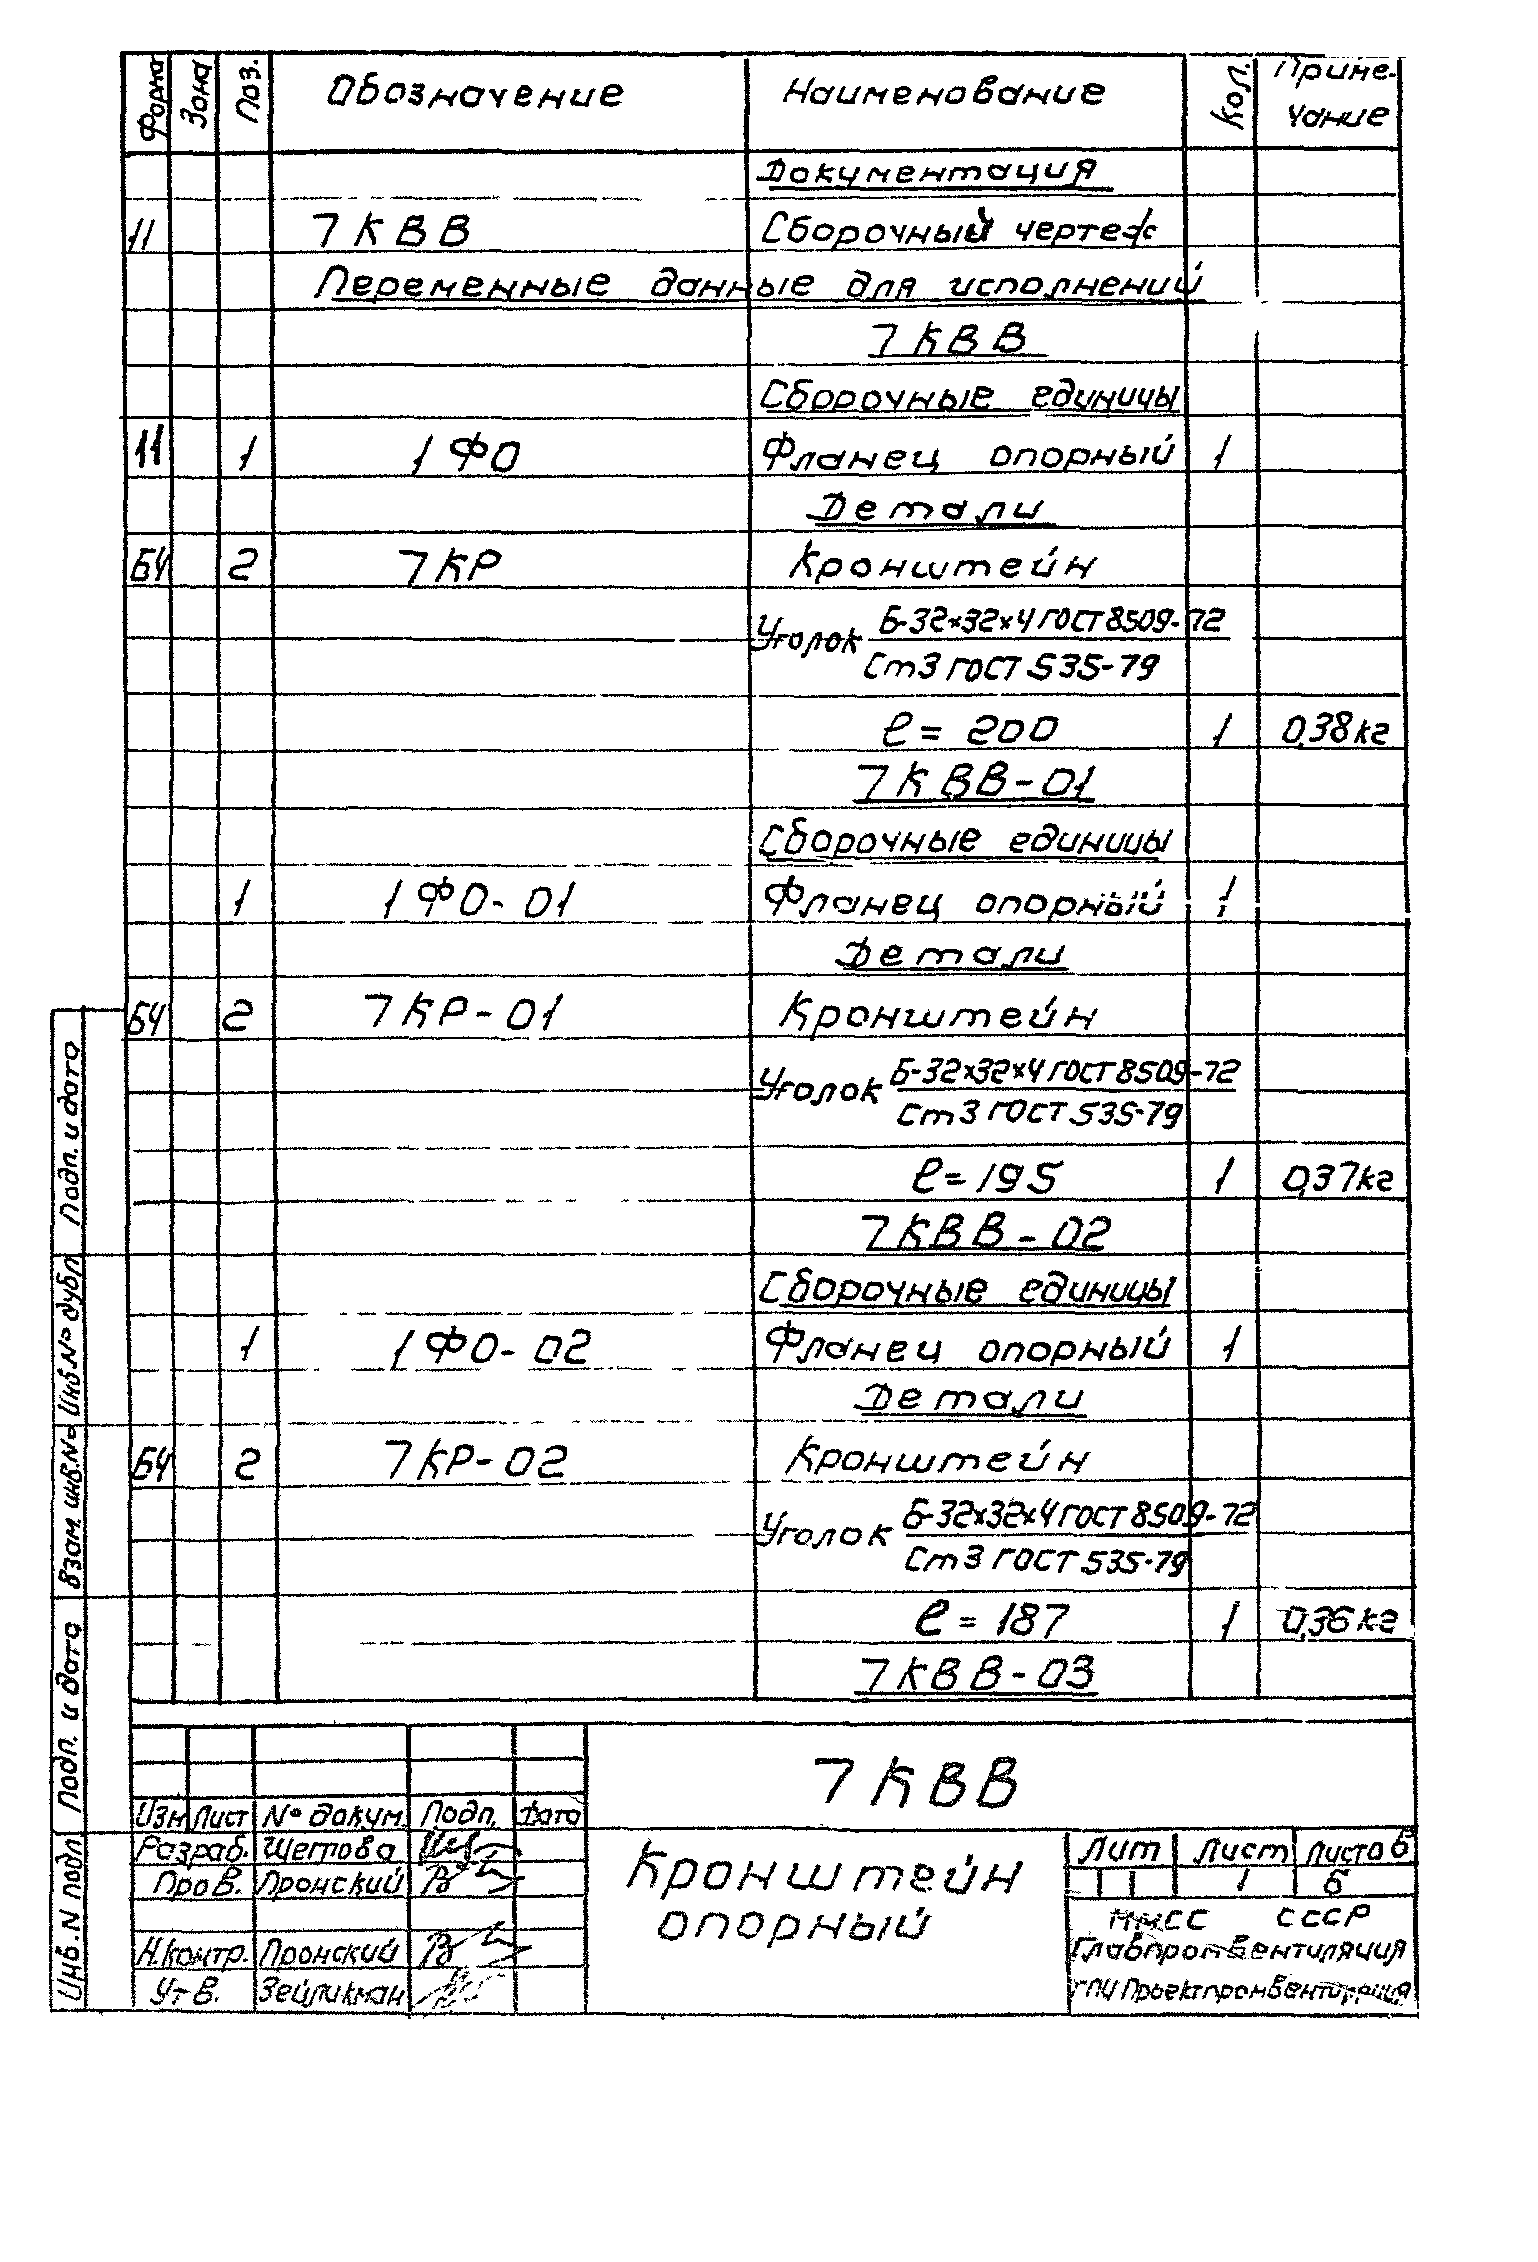 Форма Зона Поз. Обозначение Наименование Кол. Приме-
чание
Документация
11 7КВВ Сборочный чертеж
Переменные данные для исполнений
7КВВ
Сборочные единицы
11 1 1ФО Фланец опорный 1
Детали
БЧ 2 7КР Кронштейн
Уголок Б-32х32х4 ГОСТ 8509-72
Ст3 ГОСТ 535-79
ℓ= 200 1 0,38кг
7КВВ-01
Сборочные единицы
1 1ФО-01 Фланец опорный 1
Детали
БЧ 2 7КР-01 Кронштейн
Уголок Б-32х32х4 ГОСТ 8509-72
Ст3 ГОСТ 535-79
ℓ=195 1 0,37кг
7КВВ-02
Сборочные единицы
1 1ФО-02 Фланец опорный 1
Детали
БЧ 2 7КР-02 Кронштейн
Уголок Б-32х32х4 ГОСТ 8509-72
Ст3 ГОСТ 535-79
ℓ=187 1 0,36кг
7КВВ-03
Подп. и дата
Инв.№ дубл
Взам. инв.№
Подп. и дата
Инв.N подл
Изм Лист № докум. Подп. Дата
Разраб. Шетова
Пров. Пронский
Н.контр. Пронский
Утв. Зейликман
7КВВ
Кронштейн
опорный
Лит Лист Листов
1 6
ММСС СССР
Главпромвентиляция
ГПИ Проектпромвентиляция